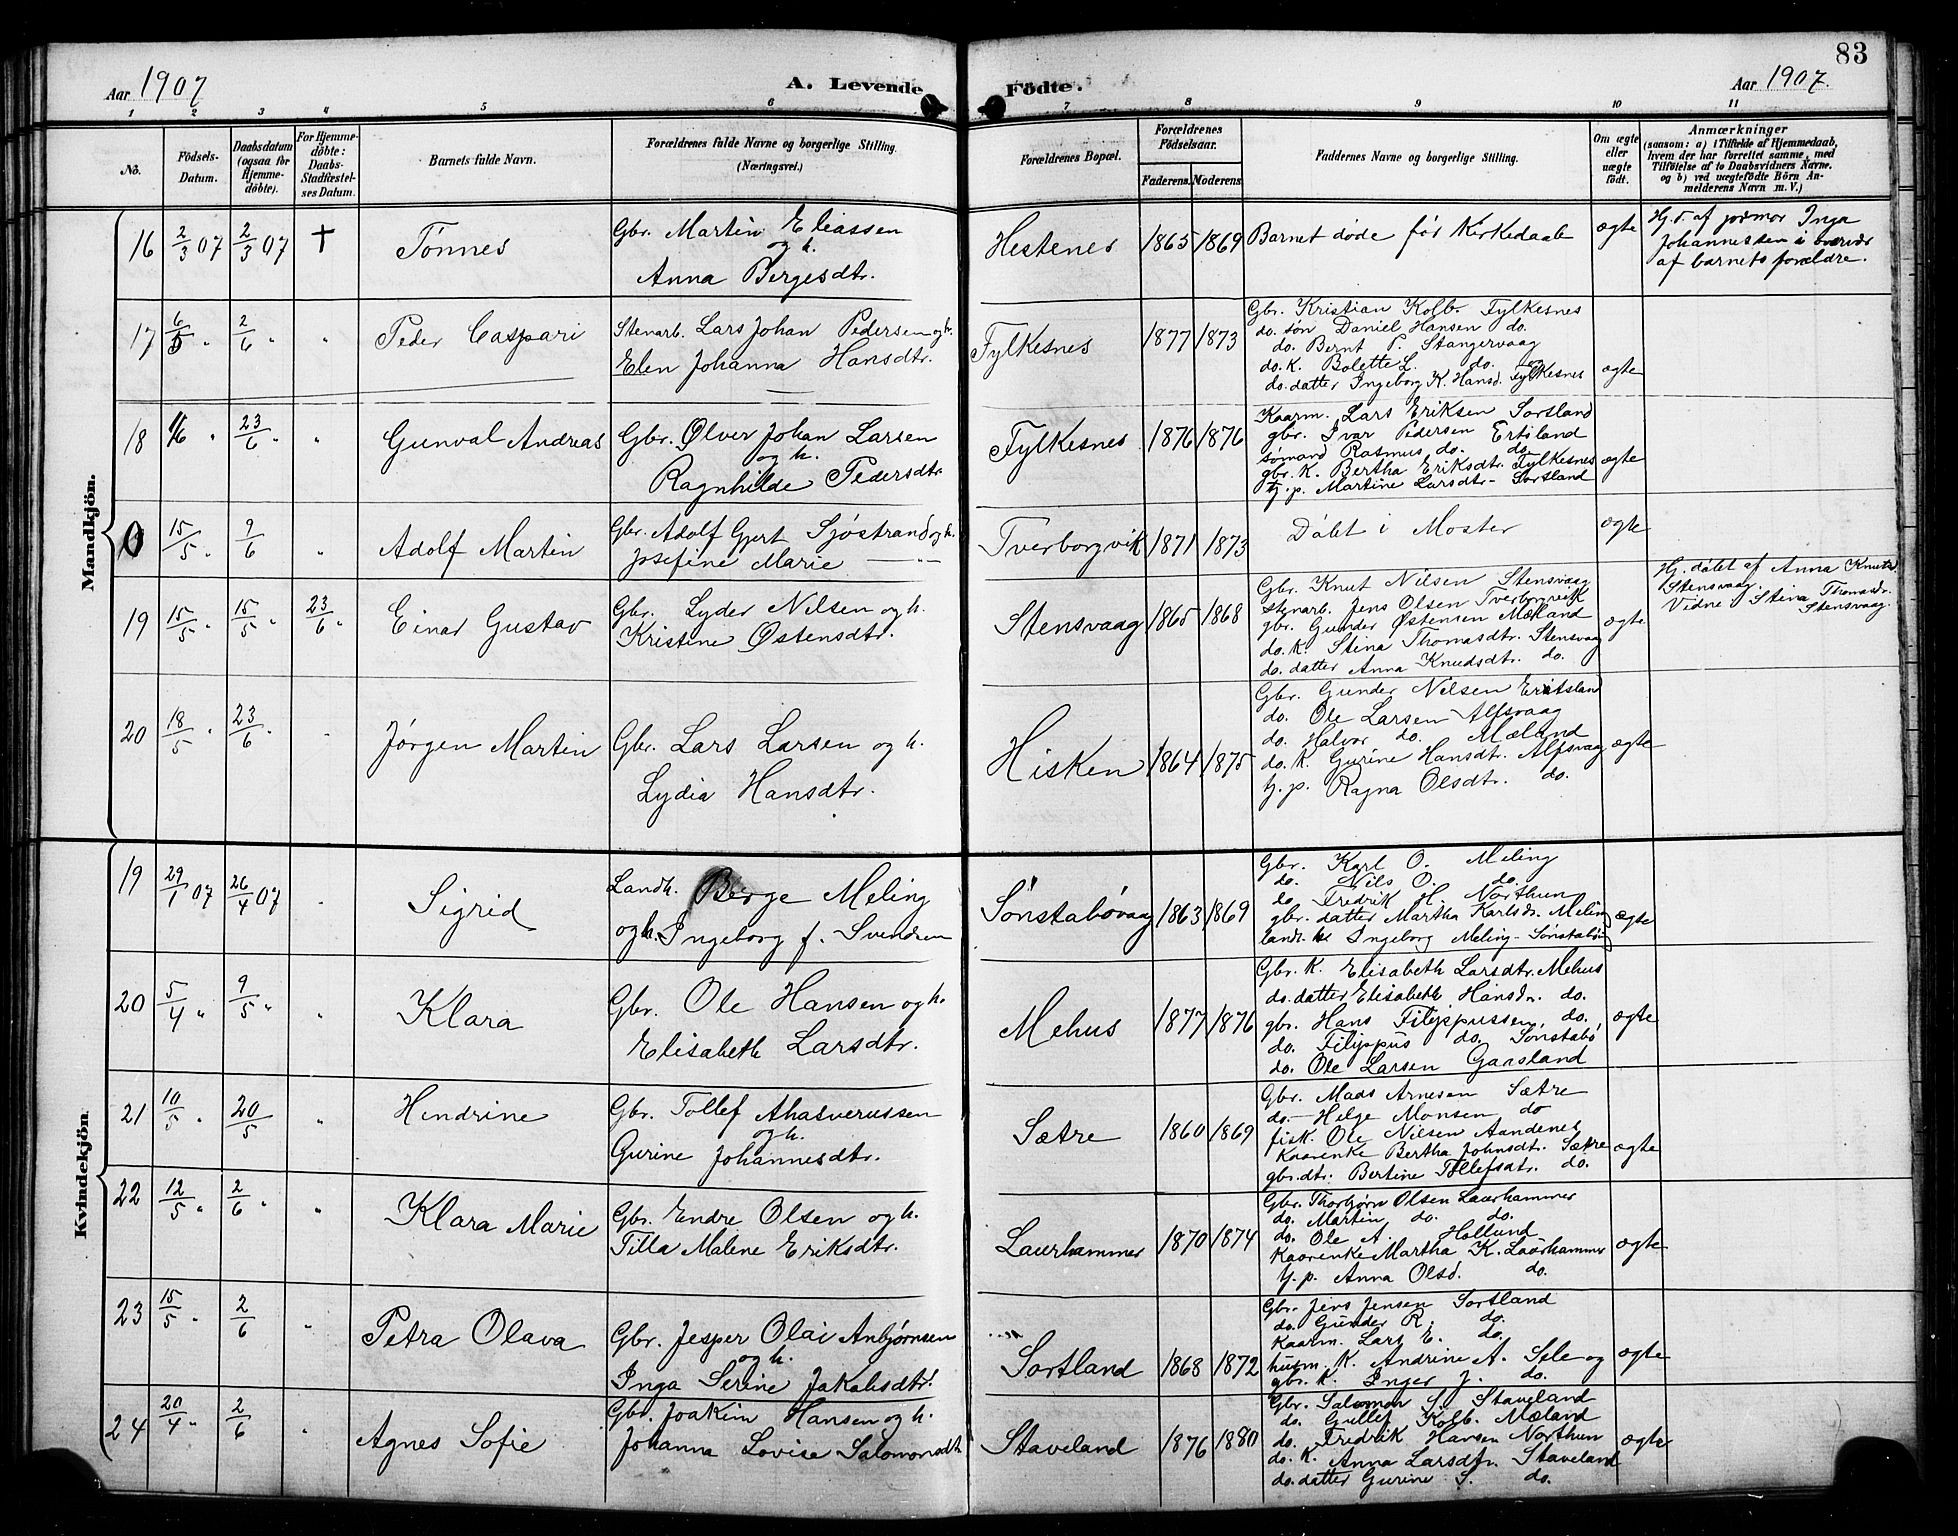 83
Aar 1907
A. Levende
Födte.
Aar 1907.
1 2 3 4 5 6 7 8 9 10 11
No.
Födsels-Datum.
Daabsdatum (ogsaa for Hjemme-döbte).
For Hjemme-döbte: Daabs-Stadfæstel-ses Datum.
Barnets fulde Navn.
Forældrenes fulde Navne og borgerlige Stilling (Næringsvei.)
Forældrenes Bopæl.
Forældrenes Födselsaar.
Faderens. Moderens.
Faddernes Navne og borgerlige Stilling.
Om ægte eller uægte født.
Anmærkninger
(saasom: a) i Tilfælde af Hjemmedaab, hvem der har forrettet samme, med Tilföielse af to Daabsvidners Navne. og b) ved uægtefödte Börn An-melderens Navn m. V.)
Mandkjön.
16 2/3 07 2/3 07 † Tønnes
Gbr. Martin Eliassen
og h.
Anna Bergesdtr.
Hestenes 1865 1869 Barnet døde før Kirkedaab ægte
Hj. d. af jordmor Inga
Johannessen i overvær
af barnets forældre.
17 6/5 " 2/6 " " Peder Caspari
Stenarb. Lars Johan Pedersen og h.
Elen Johanna Hansdtr.
Fylkesnes 1877 1873
Gbr. Kristian Kolb. Fylkesnes
do. søn Daniel Hansen do.
do. Bernt P. Stangervaag
do. K. Bolette L. do.
do. datter Ingeborg K. Hansd. Fylkesnes ægte
18 " 23/6 " " Gunval Andreas
Gbr. Ølver Johan Larsen
og h.
Ragnhilde Pedersdtr.
Fylkesnes 1876 1876
Kaarm. Lars Eriksen Sortland
gbr. Ivar Pedersen Ertsland
sømand Rasmus do. do.
gbr. K. Bertha Eriksdtr. Fylkesnes ægte
tj. p. Martine Larsdtr. Sortland
0 15/5 " 9/6 " Adolf Martin
Gbr. Adolf Gjert Sjøstrand og h.
Josefine Marie —"—
Tverborgvik 1871 1873 Døbt i Moster ægte
19 15/5 " 15/5 " 23/6 " Einar Gustav
Gbr. Lyder Nilsen og h.
Kristine Østensdtr.
Stensvaag 1865 1868
Gbr. Knut Nilsen Stensvaag
stenarb. Jens Olsen Tverborgvik
gbr. Gunder Østensen Mæland
do. K. Stina Thomasdtr. Stensvaag ægte
do. datter Anna Knudsdtr. do.
Hj. døbt af Anna Knuts.
Stensvaag.
Vidne Stina Thomasdr.
Stensvaag.
20 18/5 " 23/6 " Jørgen Martin
Gbr. Lars Larsen og h.
Lydia Hansdtr.
Hisken 1864 1875
Gbr. Gunder Nilsen Eritsland
do. Ole Larsen Alfsvaag
do. Halvor do. Mæland
do. K. Gurine Hansdtr. Alfsvaag ægte
tj. p. Ragna Olsdtr. do.
Kvindekjön.
19 29/1 07 26/4 07 Sigrid
Landh. Berge Meling
og h. Ingeborg f. Svendsen
Sønstabøvaag 1863 1869
Gbr. Karl O. Meling
do. Nils O. do.
do Fredrik H. Northun
gbr. datter Martha Karlsdr. Meling ægte
landh. Ingeborg Meling - Sønstabø
20 5/4 " 9/5 " " Klara
Gbr. Ole Hansen og h.
Elisabeth Larsdtr.
Mehus 1877 1876
Gbr. K. Elisabeth Larsdtr. Mehus
do. datter Elisabeth Hansdr. do.
gbr. Hans Filippussen do. ægte
do. Filippus do. Sønstabø
do. Ole Larsen Gaasland
21 10/5 " 20/5 " Hendrine
Gbr. Tollef Ahasverussen
og h.
Gurine Johannesdtr.
Sætre 1860 1869
Gbr. Mads Arnesen Sætre
do. Helge Monsen do
fisk. Ole Nilsen Aandenes
Kaarenke Bertha Johnsdt. Sætre ægte
gbr. dtr. Bertine Tollefsdtr. do.
22 12/5 " 2/6 " " Klara Marie
Gbr. Endre Olsen og h.
Tilla Malene Eriksdtr.
Laurhammer 1870 1874
Gbr. Thorbjørn Olsen Laurhammer
do. Martin do. do.
do. Ole A. Hollund
Kaarenke Martha K. Laurhammer ægte
tj. p. Anna Olsd. do.
23 15/5 " 2/6 " Petra Olava
Gbr. Jesper Olai Anbjørnsen
og h.
Inga Serine Jakobsdtr.
Sortland 1868 1872
Gbr. Jens Jensen Sortland
do. Gunder R. do.
Kaarm. Lars E. do.
husm. K. Andrine A. Sele og ægte
gbr. K. Inger J. do.
24 20/4 " 2/6 " Agnes Sofie
Gbr. Joakim Hansen og h.
Johanna Lovise Salomonsdtr.
Staveland 1876 1880
Gbr. Salomon S. Staveland
do. Gullef Kolb. Mæland
do. Fredrik Hansen Northun
do. K. Anna Larsdtr. Staveland ægte
do. datter Gurine S. do.